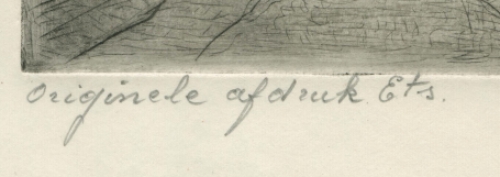 Originele afdruk Ets.